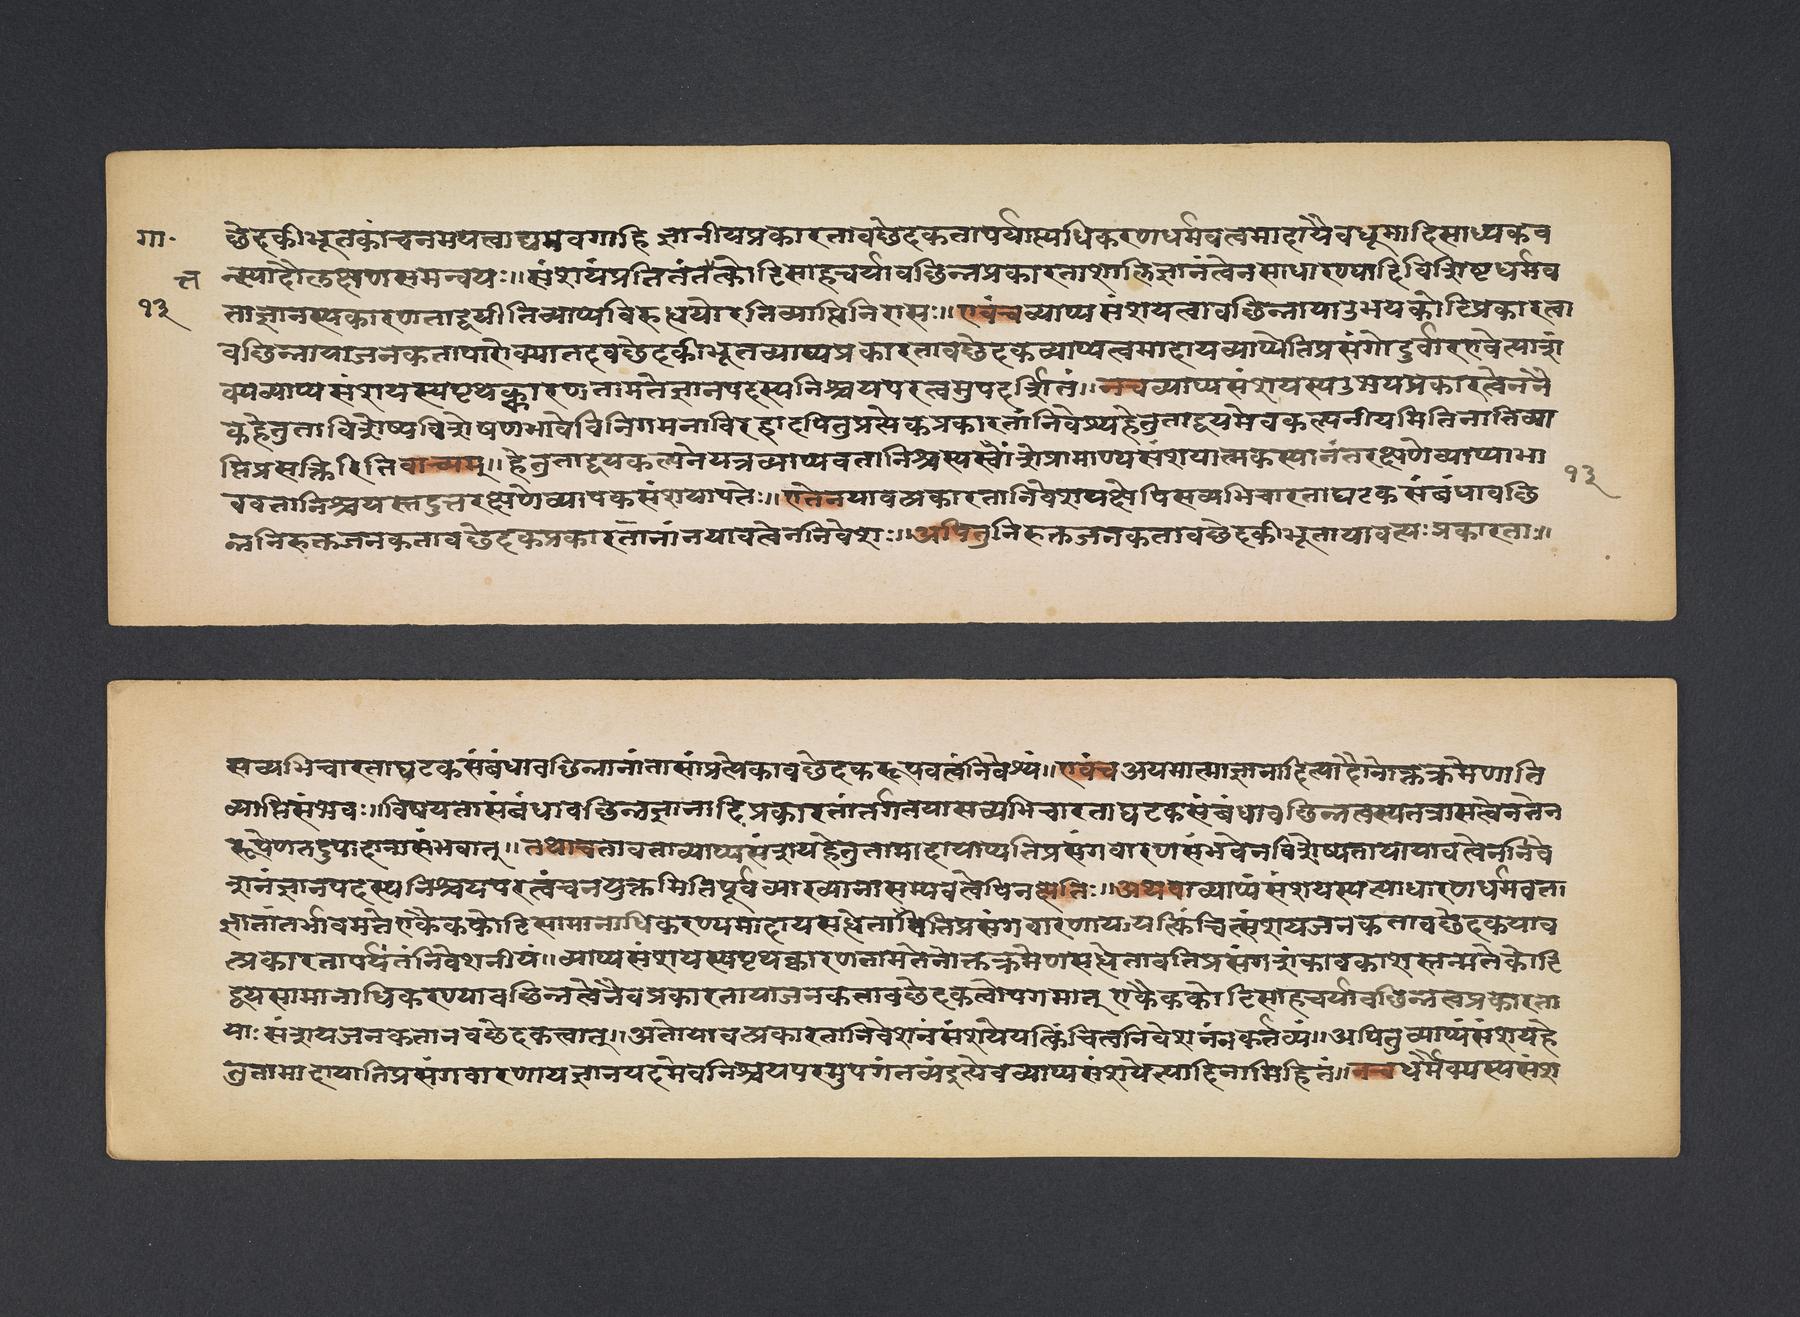 गा॰
त
१३
छेदकीभूतकांचनमयत्वाद्यमवगाहि ज्ञानीयप्रकारतावछेदकतापर्याप्त्यधिकरणधर्मवत्वमादायैवधूमादिसाध्यकव
न्ह्यादौलक्षणसमन्वयः॥संशयंप्रतितंतत्कोटिसाहचर्यावछिन्नप्रकारताशालिज्ञानंत्वेनसाधारण्यादिविशिष्टधर्मव
ताज्ञानस्यकारणताद्वयीतिव्याप्यविरुद्धयोरतिव्याप्तिनिरासः॥एवंचव्याप्यसंशयत्वावछिन्नायाउभयकोटिप्रकारत्वा
वछिन्नायाजनकतायारोक्यातदवछेदकीभूतव्याप्यप्रकारतावछेदकव्याप्यत्वमादायव्याप्येतिप्रसंगोदुर्वारएवेत्याशं
क्यव्याप्यसंशयस्यपृथक्कारणतामतेज्ञानपदस्यनिश्चयपरत्वमुपदर्शितं॥नचव्याप्यसंशयस्यउभयप्रकारत्वेननै
कहेतुताविशेष्यविशेषणभावेविनिगमनाविरहादपितुप्रत्येकप्रकारतांनिवेश्यहेतुताद्वयमेवकल्पनीयमितिनातिव्या
प्तिप्रसक्तिरितिवाच्यम्॥हेतुताद्वयकल्पनेयत्रव्याप्यवतानिश्चस्यस्वांशेप्रामाण्यसंशयात्मकस्यानंतरक्षणेव्याप्याभा
ववतानिश्चयस्तदुत्तरक्षणेव्यापकसंशयापत्तेः॥एतेनयावत्प्रकारतानिवेशपक्षेपिसव्यभिचारताघटकसंबंधावछि
न्ननिरुक्तजनकतावछेदकप्रकारतानांनयावत्वेननिवेशः॥अपितुनिरुक्तजनकतावछेदकीभूतायावत्यःप्रकारताः॥
१३
सव्यभिचारताघटकसंबंधावछिन्नानांतासांप्रत्येकावछेदकरूपवत्वंनिवेश्यं॥एवंचअयमात्माज्ञानादित्यादौनोक्तक्रमेणाति
व्याप्तिसंभवः॥विषयतासंबंधावछिन्नज्ञानादिप्रकारतांतर्गतयासव्यभिचारताघटकसंबंधावछिन्नत्वस्यतत्रासत्वेनतेन
रूपेणतदुपादानासंभवात्॥तथाचतावताव्याप्यसंशयहेतुतामादायाप्यतिप्रसंगवारणसंभवेनविशेष्यतायायावत्वेननिवे
शनंज्ञानपदस्यनिश्चयपरत्वंचनयुक्तमितिपूर्वव्याख्यानासम्यक्त्वेपिनक्षतिः॥अथवाव्याप्यसंशयस्यत्साधारणधर्मवत्ता
ज्ञानांतर्भावमतेएकैककोटिसामानाधिकरण्यमादायसद्धेतावतिप्रसंगवारणाययत्किंचित्संशयजनकतावछेदकयाव
त्प्रकारतापर्यंतंनिवेशनीयं॥व्याप्यसंशयस्यपृथक्कारणतामतेनोक्तक्रमेणसद्धेतावतिप्रसंगशंकावकाशस्तन्मतेकोटि
द्वयसामानाधिकरण्यावछिन्नत्वेनैवप्रकारतायाजनकतावछेदकत्वोपगमात् एकैककोटिसाहचर्यावछिन्नत्वप्रकारता
याः संशयजनकतानवछेदकत्वात्॥अतोयावत्प्रकारतानिवेशनंसंशयेयत्किंचित्वनिवेशनंनकर्तव्यं॥अपितुव्याप्यसंशयहे
तुतामादायातिप्रसंगवारणायज्ञानपदमेवनिश्चयपरमुपगंतव्यंइत्येवव्याप्यसंशयेत्यादिनाभिहितं॥नचधर्मैक्यस्यसंश